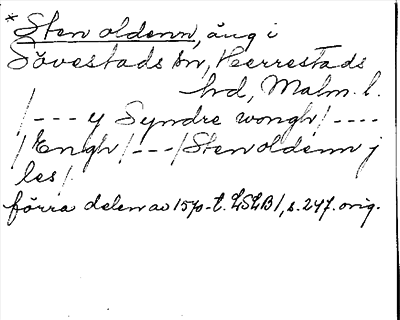 * Sten oldenn, äng i
Sövestads sn, Herrestads
hd, Malm. l.
/--- y Syndre wongh/----
/Engh/---/Sten oldenn j
les/.
förra delen av 1570-t. LSLB 1, s. 247. orig.